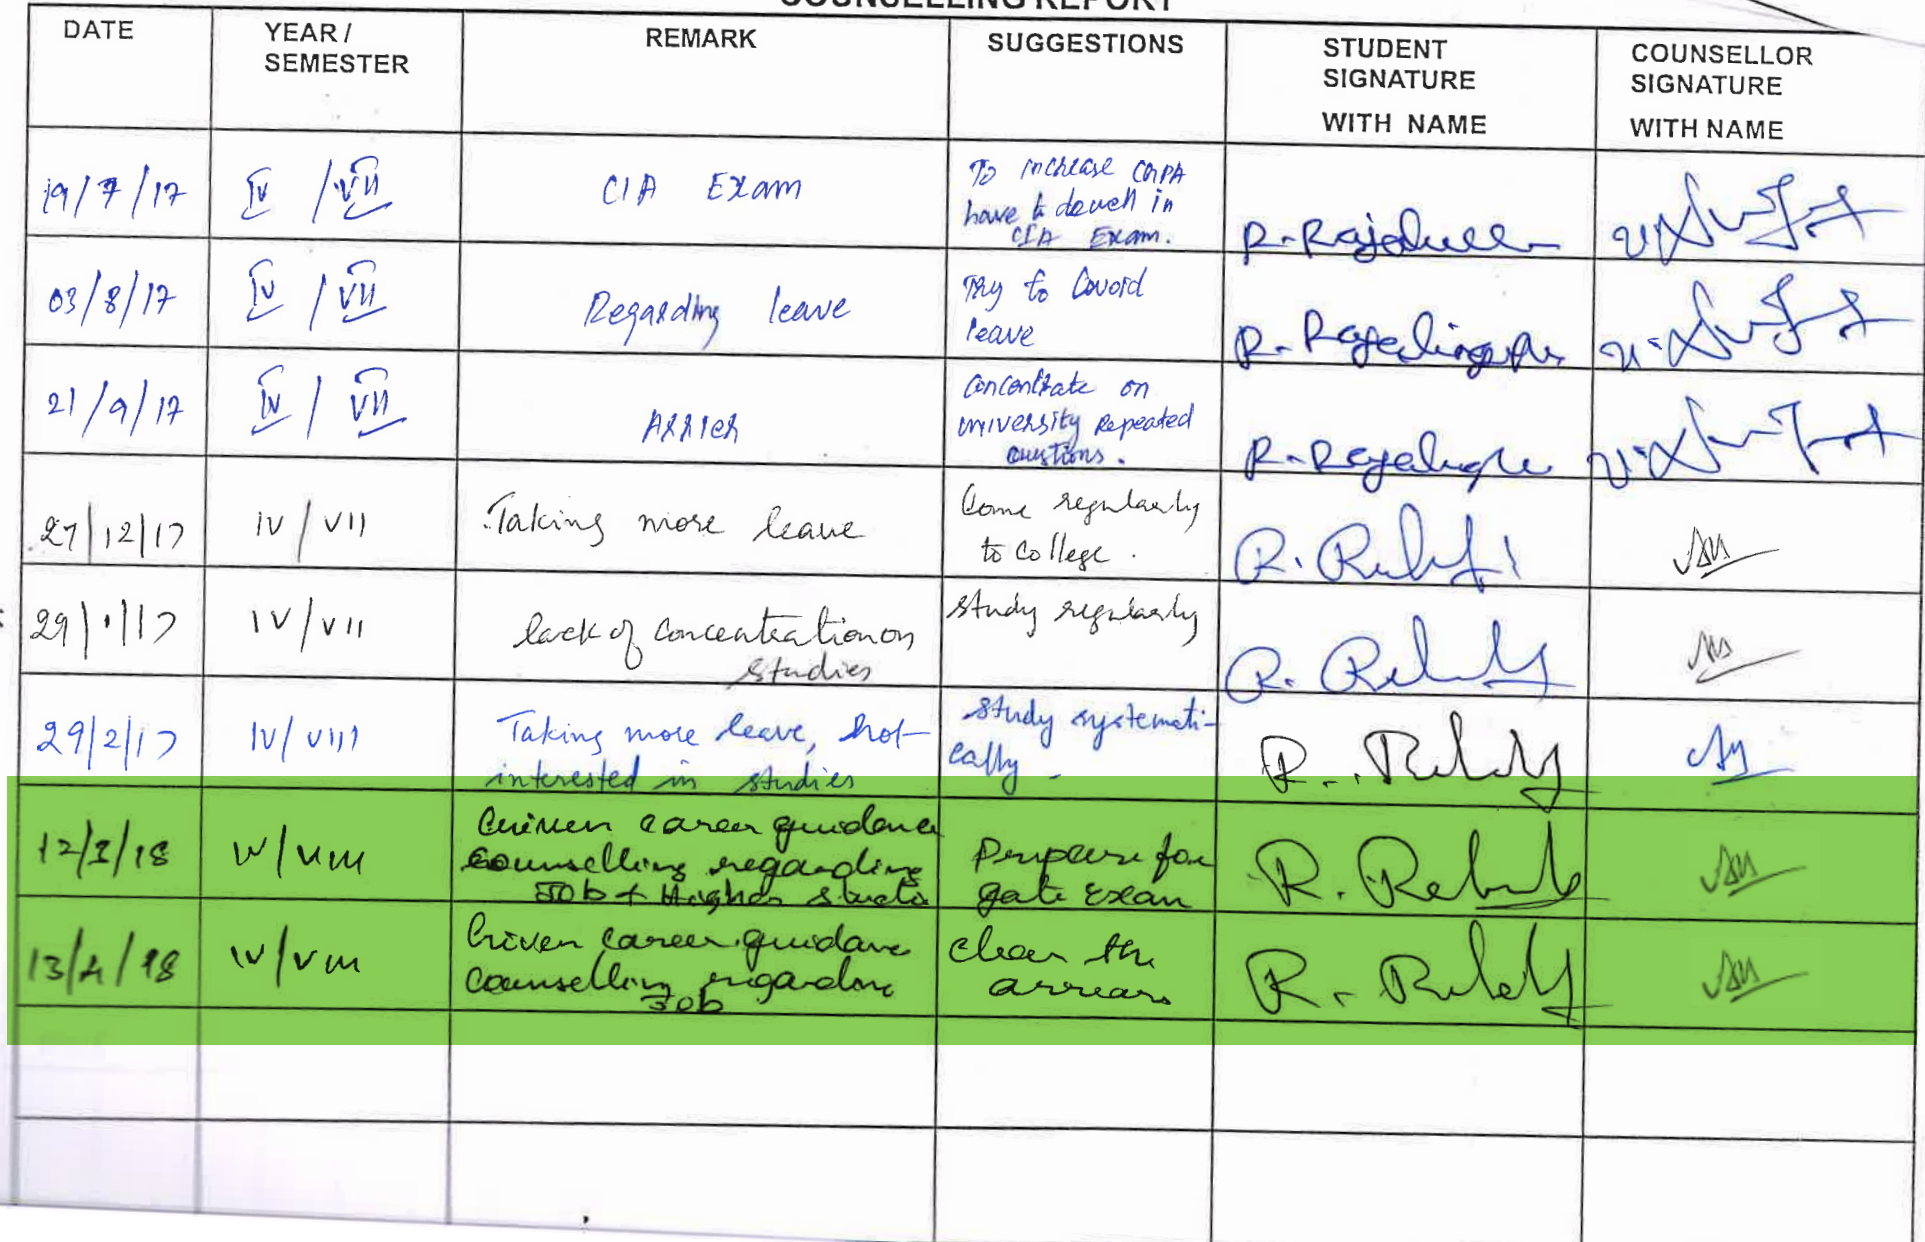 COUNSELLING REPORT
DATE
YEAR /
SEMESTER
REMARK
SUGGESTIONS
STUDENT
SIGNATURE
WITH NAME
COUNSELLOR
SIGNATURE
WITH NAME
19/7/17
IV / VII
CIA Exam
To increase CGPA
have to do well in
CIA Exam.
03/8/17
IV / VII
Regarding leave
Try to
leave
21/9/17
IV / VII
Arrier
Concentrate on
university Repeated
questions.
27/12/17
IV / VII
Taking more leave
Come regularly
to College.
29/1/17
IV / VII
lack of concentration on
studies
study regularly
29/2/17
IV / VIII
Taking more leave, not
interested in studies
study systemati-
cally
12/3/18
IV / VIII
Given career guidance
counselling regarding
Job + Higher
Prepare for
gate exam
13/4/18
IV / VIII
Given career guidance
counselling regarding
Job
clear the
arrears